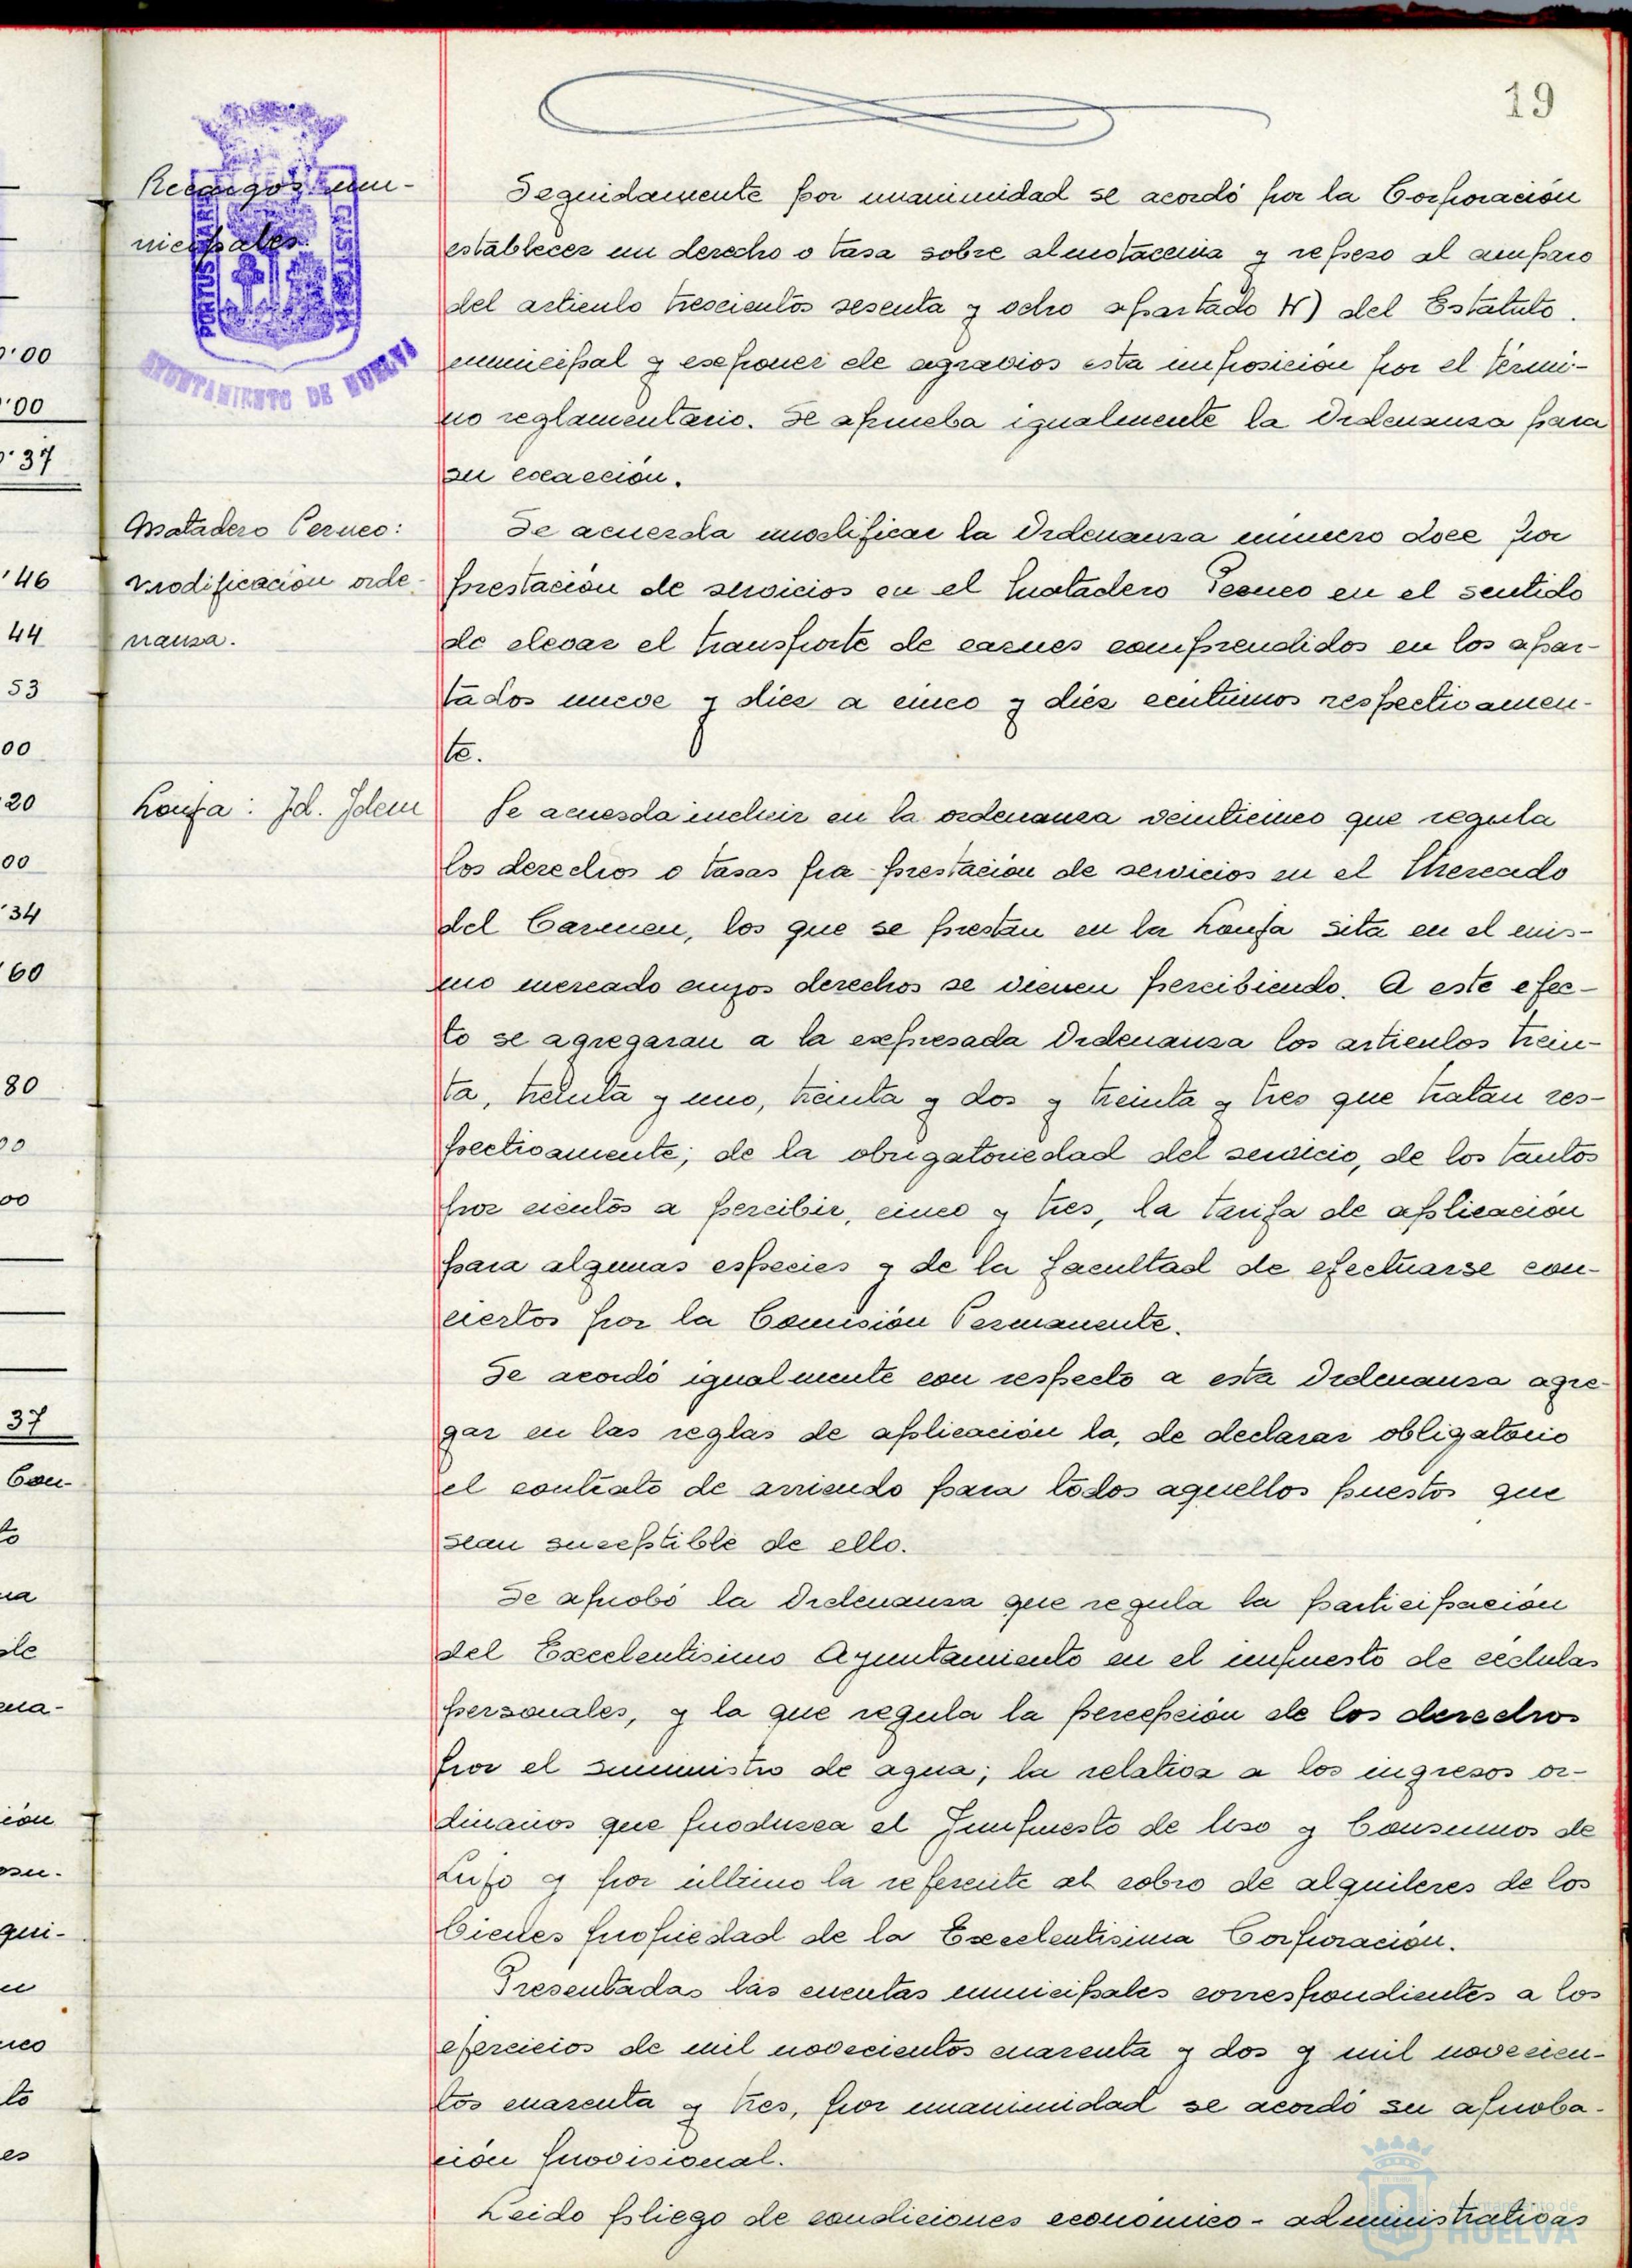 19
Recargos mu-
nicipales.
PORTUS MARIS
ET TERRE CUSTODIA
AYUNTAMIENTO DE HUELVA
Seguidamente por unanimidad se acordó por la Corporación
establecer un derecho o tasa sobre almotacenia y repeso al amparo
del articulo trescientos sesenta y ocho apartado N) del Estatuto.
municipal y exponer de agravios esta imposición por el térmi-
no reglamentario. Se aprueba igualmente la Ordenansa para
su exacción.
Matadero Perneo:
modificación orde-
nansa.
Se acuerda modificar la Ordenansa número doce por
prestación de servicios en el Matadero Perneo en el sentido
de elevar el transporte de carnes comprendidos en los apar-
tados nueve y diez a cinco y diés centimos respectivamen-
te.
Lonja: Id. Idem
Se acuerda incluir en la ordenansa veinticinco que regula
los derechos o tasas pra prestación de servicios en el Mercado
del Carmen, los que se prestan en la Lonja sita en el mis-
mo mercado cuyos derechos se vienen percibiendo. A este efec-
to se agregaran a la expresada Ordenansa los articulos trein-
ta, treinta y uno, treinta y dos y treinta y tres que tratan res-
pectivamente; de la obrigatoriedad del servicio, de los tantos
por cientos a percibir, cinco y tres, la tarifa de aplicación
para algunas especies y de la facultad de efectuarse con-
ciertos por la Comisión Permanente.
Se acordó igualmente con respecto a esta Ordenansa agre-
gar en las reglas de aplicación la, de declarar obligatorio
el contrato de arriendo para todos aquellos puestos que
sean suceptible de ello.
Se aprobó la Ordenansa que regula la participación
del Excelentisimo Ayuntamiento en el impuesto de cédulas
personales, y la que regula la percepción de los derechos
por el suministro de agua; la relativa a los ingresos or-
dinarios que produzca el Impuesto de Uso y Consumos de
Lujo y por último la referente al cobro de alquileres de los
bienes propiedad de la Excelentisima Corporación.
Presentadas las cuentas municipales correspondientes a los
ejercicios de mil novecientos cuarenta y dos y mil novecien-
tos cuarenta y tres, por unanimidad se acordó su aproba-
ción provisional.
Leido pliego de condiciones económico-administrativas
Ayuntamiento de
HUELVA